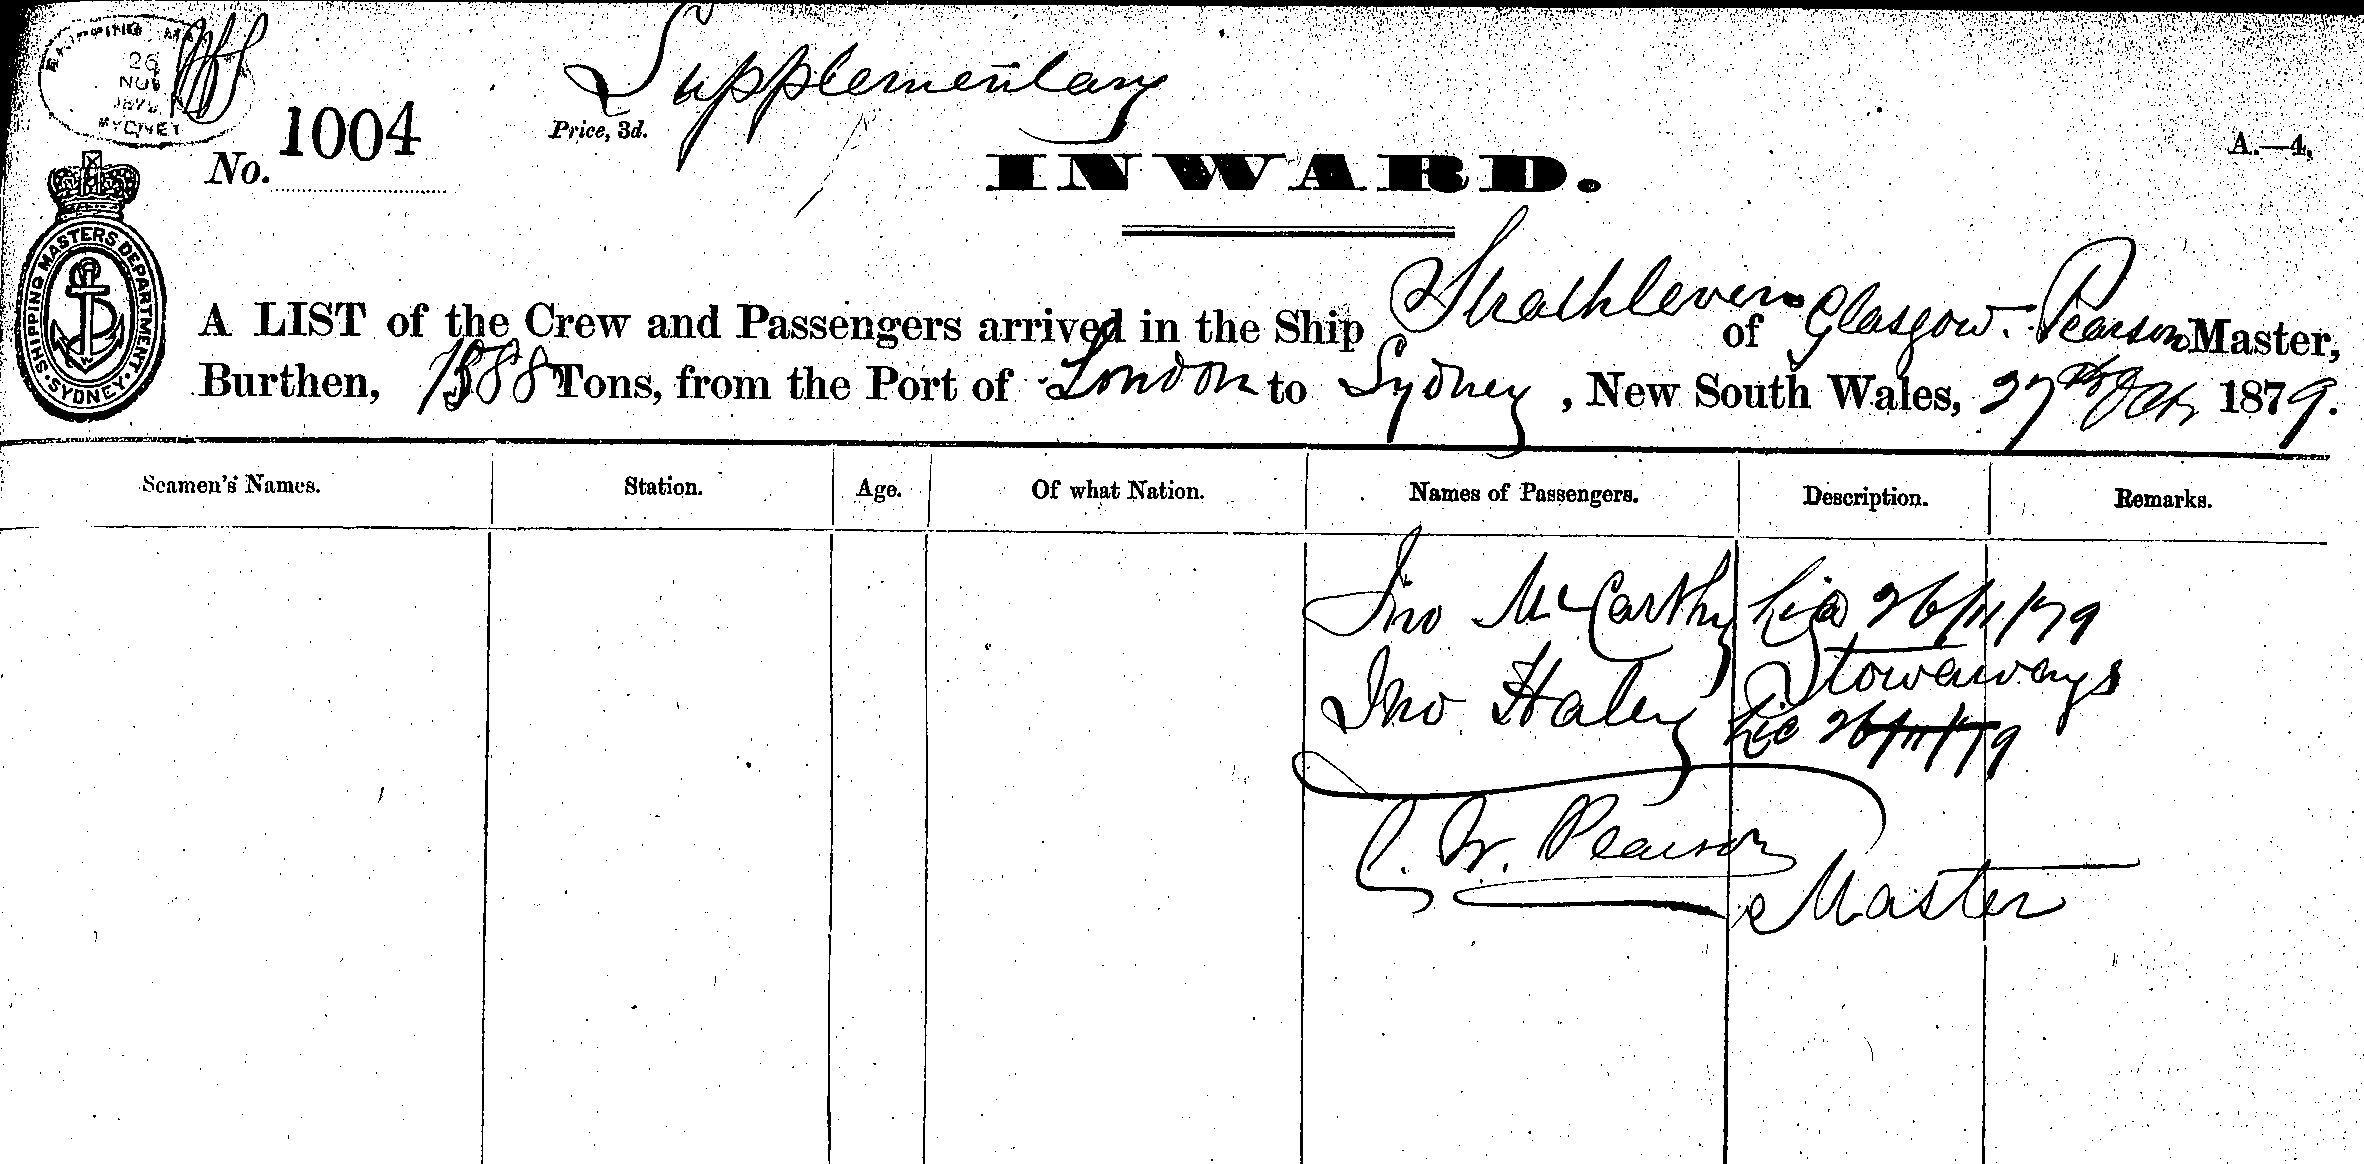 26
NOV
SYDNEY
Supplementary
No. 1004
Price, 3d.
INWARD.
A.—4,
SHIPPING MASTERS DEPARTMENT. SYDNEY.
A LIST of the Crew and Passengers arrived in the Ship Strathleven of Glasgow. Pearson Master,
Burthen, 1588 Tons, from the Port of London to Sydney, New South Wales, 27th Oct 1879.
Seamen's Names. Station. Age. Of what Nation. Names of Passengers. Description. Remarks.
Jno McCarthy Lic 26/11/79
Stowaways
Jno Haley Lic 26/11/79
C. W. Pearson
Master